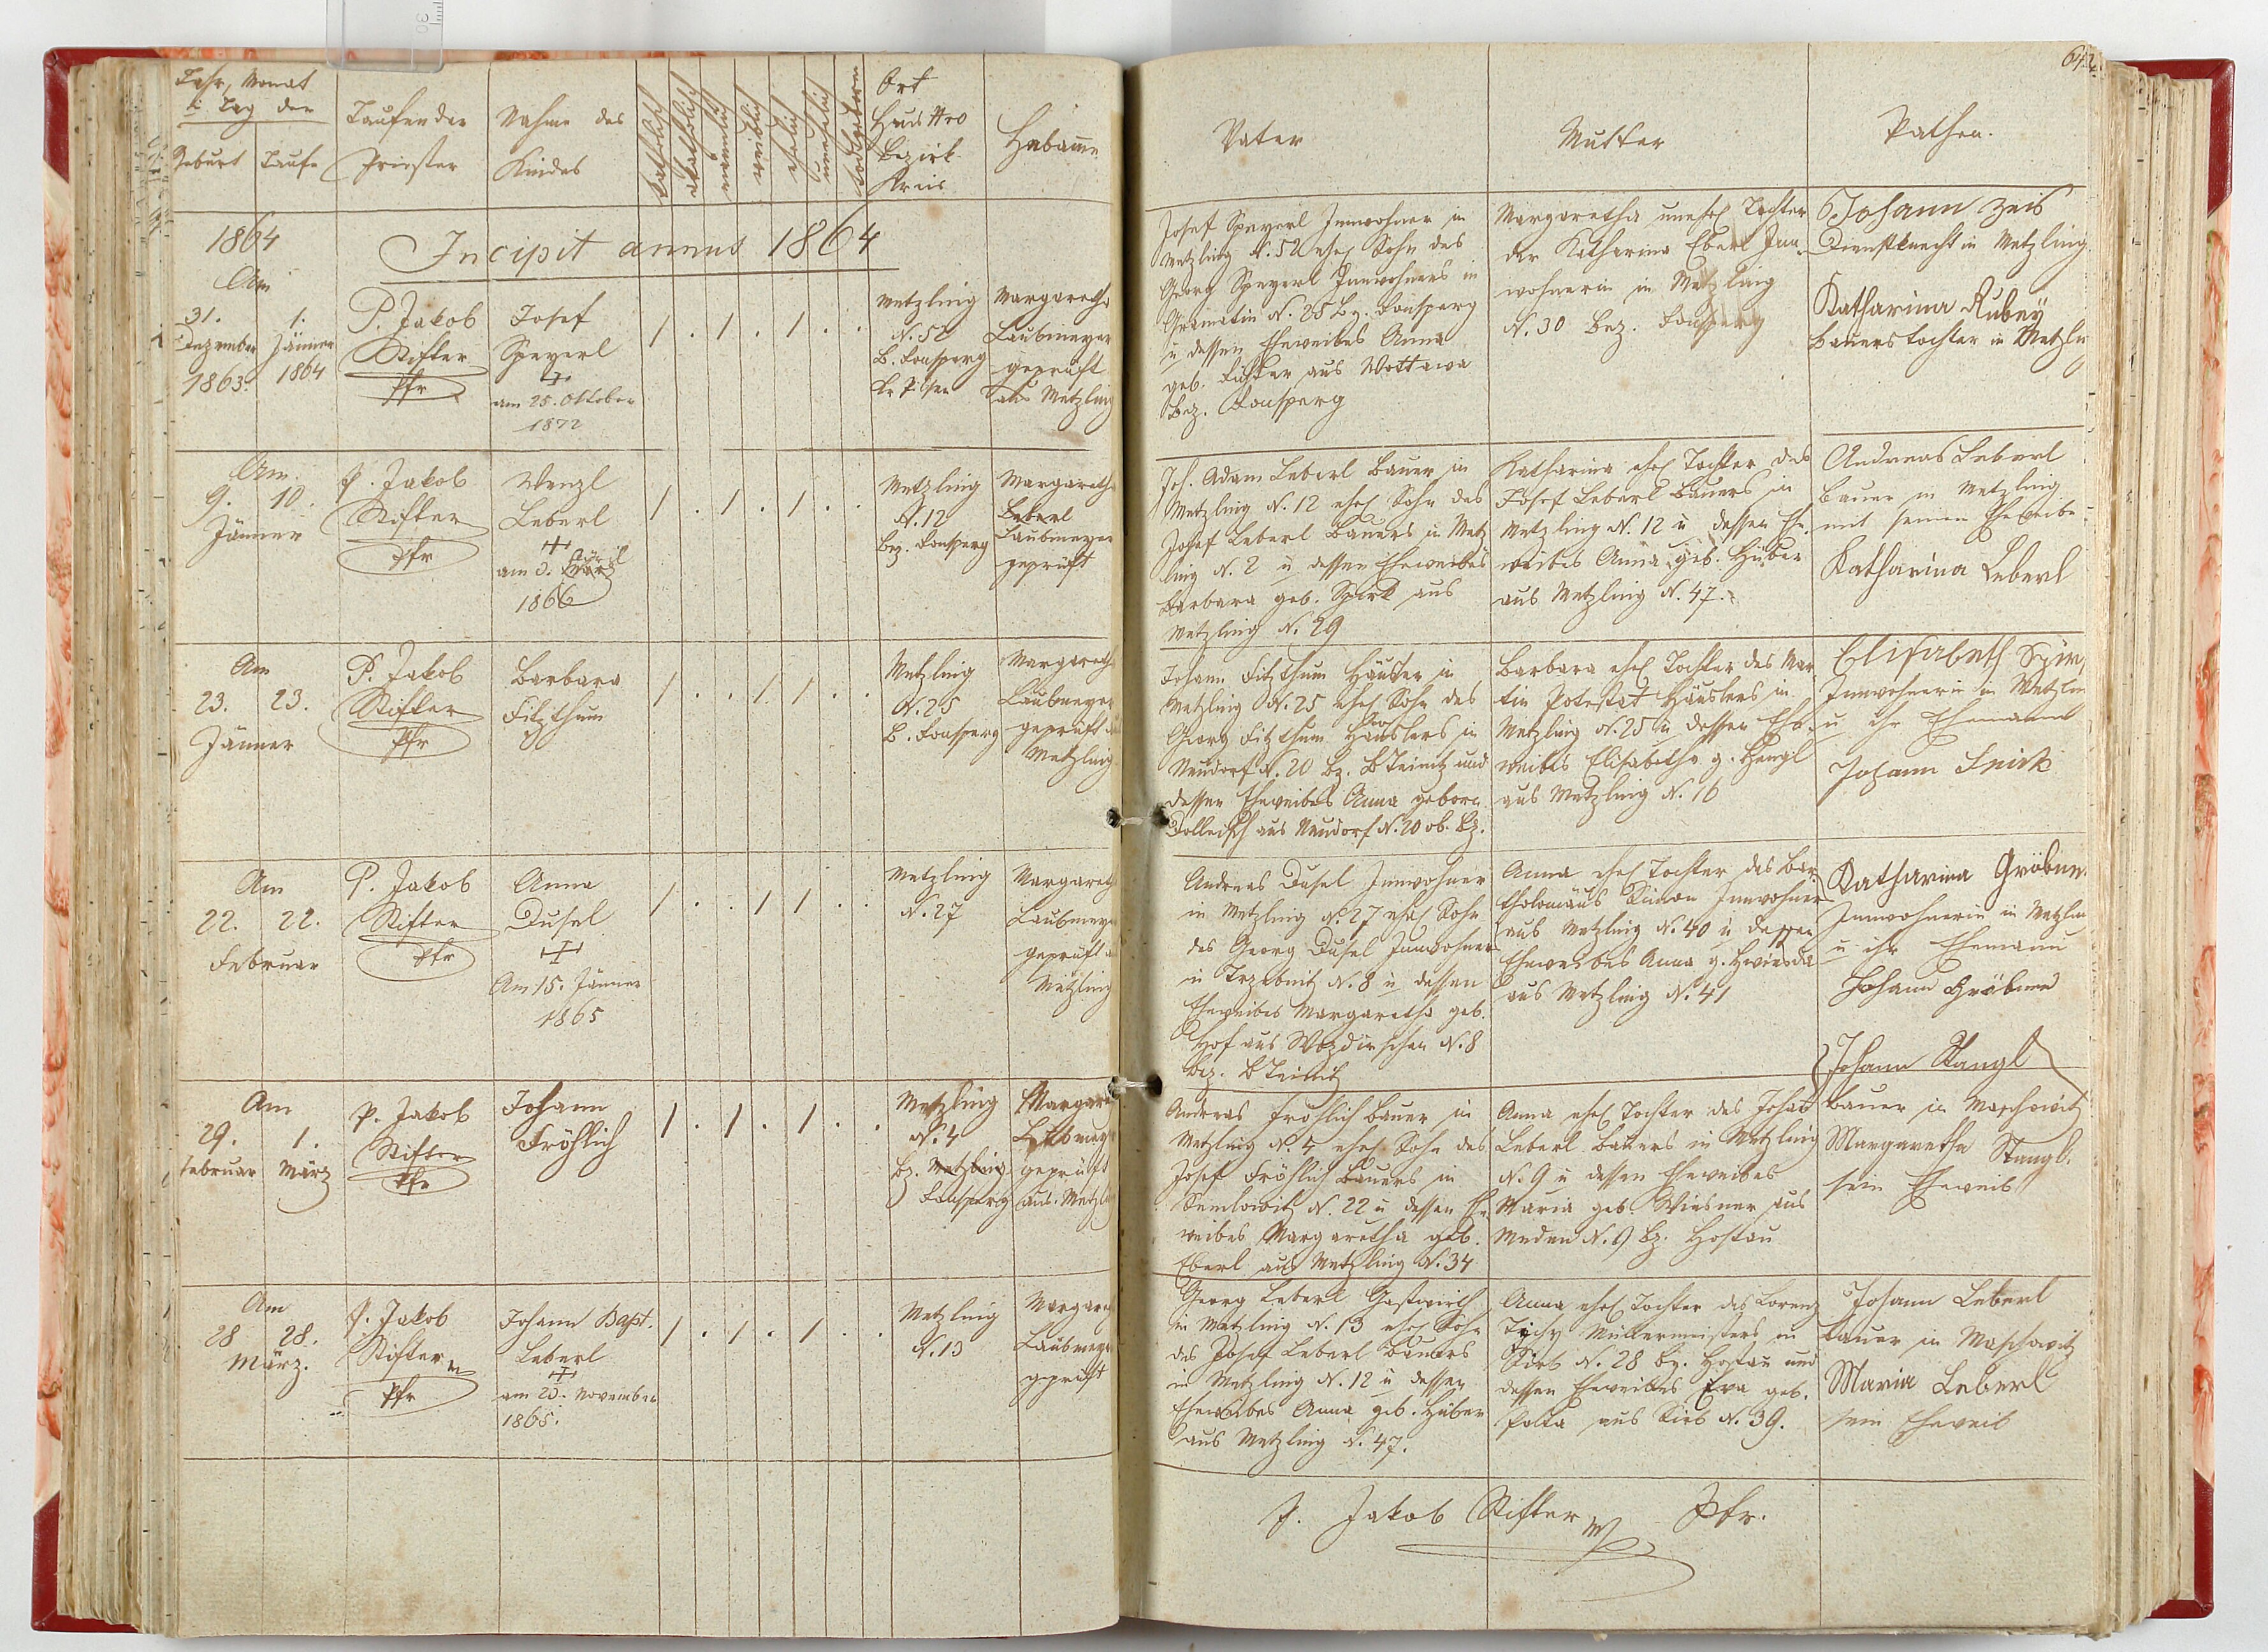 Jahr, Monat
u Tag der
Geburt
Taufe
Taufender
Priester
Nahme des
Kindes
katholisch
akatholisch
männlich
weiblich
ehelich
unehelich
Ort
Haus Nro
Bezirk
Kreis
Hebamme
Vater
Mutter
Pathen.
1864
Incipit annus 1864
Am
31. 1.
Dezember Jänner
1863. 1864
P. Jakob
Stifter
Pfr
Josef
Speyerl
+
am 25. Oktober
1872
1 . 1 . 1 . .
Metzling
N. 52
B. Ronsperg
Kr Pilsen
Margaretha
Laubmeyer
geprüft
aus Metzling
Josef Speyerl Innwohner in
Metzling N. 52 ehel Sohn des
Georg Speyerl Innwohners in
Gramatin N. 28 Bz. Ronsperg
u dessen Eheweibes Anna
geb. aus Wottawa
Bez. Ronsperg
Margaretha unehel Tochter
der Katharina Eberl Inn-
wohnerin in Metzling
N. 30 Bez. Ronsperg
Johann Zeis
Dienstknecht in Metzling
Katharina Rubey
Bauerstochter in Metzlin
Am
9. 10.
Jänner
P. Jakob
Stifter
Pfr
Wenzl
Leberl
+
am 3. April
1866
1 . 1 . 1 . .
Metzling
N. 12
Bez. Ronsperg
Margaretha
Leberl
Laubmeyer
geprüft
Joh. Adam Leberl Bauer in
Metzling N. 12 ehel Sohn des
Josef Leberl Bauers in Metz
ling N. 2 u dessen Eheweibes
Barbara geb. Spirk aus
Metzling N. 29
Katharina ehel Tochter des
Josef Leberl Bauers in
Metzling N. 12 u dessen Ehe-
weibes Anna geb. Huber
aus Metzling N. 47.
Andreas Leberl
Bauer in Metzling
mit seinem Eheweibe
Katharina Leberl
Am
23. 23.
Jänner
P. Jakob
Stifter
Pfr
Barbara
Fitzthum
1 . . 1 1 . .
Metzling
N. 25
B. Ronsperg
Margareth
Laubmeyer
geprüft
Metzling
Johann Fitzthum Häusler in
Metzling N. 25 ehel Sohn des
Georg Fitzthum Häuslers in
Neudorf N. 20 Bz. BTeinitz und
dessen Eheweibes Anna geborn
Dolleisch aus Neudorf N. 20 ob. Bz.
Barbara ehel Tochter des Mar
tin Potestat Häuslers in
Metzling N. 25 u dessen Ehe-
weibes Elisabetha g. Hengl
aus Metzling N. 16
Elisabeth Spir
Innwohnerin in Metzlin
u ihr Ehemann
Johann Spirk
Am
22. 22.
Februar
P. Jakob
Stifter
Pfr
Anna
Dusel
+
Am 15. Jänner
1865
1 . . 1 1 . .
Metzling
N. 27
Margareth
Laubmeye
geprüft a
Metzling
Andreas Dusel Innwohner
in Metzling N. 27 ehel Sohn
des Georg Dusel Innwohner
in Trzebnitz N. 8 u dessen
Eheweibes Margaretha geb.
Hof aus N. 8
Bez. BTeinitz
Anna ehel Tochter des Bar-
tholomäus Simon Innwohner
aus Metzling N. 40 u dessen
Eheweibes Anna g.
aus Metzling N. 41
Katharina Gröbner
Innwohnerin in Metzlin
u ihr Ehemann
Johann Gröbner
Am
29. 1.
Februar März
P. Jakob
Stifter
Pfr
Johann
Fröhlich
1 . 1 . 1 . .
Metzling
N. 4
Bz. Metzling
Ronsperg
Margare
Laubmeye
geprüft
aus Metzli
Andreas Fröhlich Bauer in
Metzling N. 4 ehel Sohn des
Josef Fröhlich Bauers in
Semlowitz N. 22 u dessen Ehe-
weibes Margaretha geb.
Eberl aus Metzling N. 34
Anna ehel Tochter des
Leberl Bauers in Metzling
N. 9 u dessen Eheweibes
Maria geb. Wiesner aus
Meden N. 9 Bz. Hostau
Johann Stangl
Bauer in Maschowitz
Margaretha Stangl
sein Eheweib
Am
28 28.
März.
P. Jakob
Stifter
Pfr
Johann Bapt.
Leberl
+
am 20. November
1865.
1 . 1 . 1 . .
Metzling
N. 13
Margare
Laubmeye
geprüft
Georg Leberl Gastwirth
in Metzling N. 13 ehel Sohn
des Josef Leberl Bauers
in Metzling N. 12 u dessen
Eheweibes Anna geb. Huber
aus Metzling N. 47.
Anna ehel Tochter des Lorenz
Tichy Müllermeisters in
Sirb N. 28 Bz. Hostau und
dessen Eheweibes Eva geb.
Polta aus Sirb N. 39.
Johann Leberl
Bauer in Maschowitz
Maria Leberl
sein Eheweib
P. Jakob Stifter Pfr.